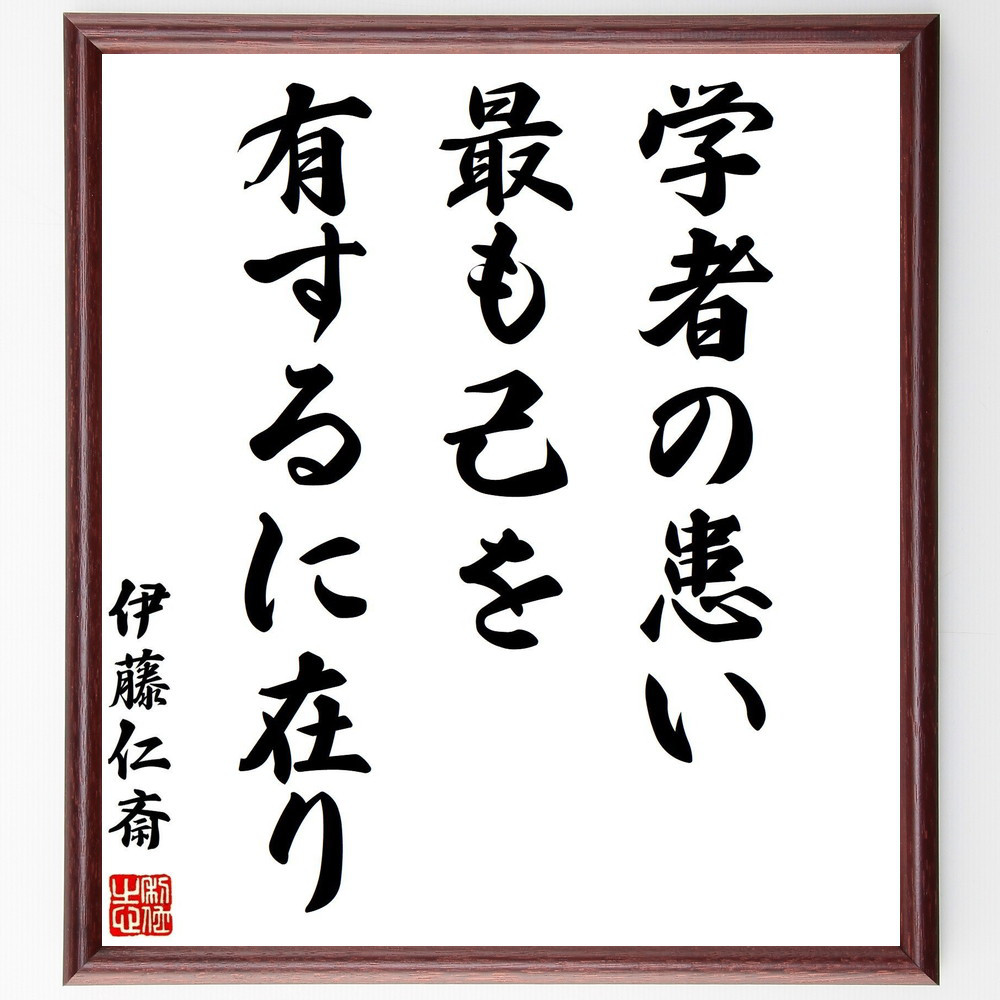 学者の患い
最も己を
有するに在り
伊藤仁斎